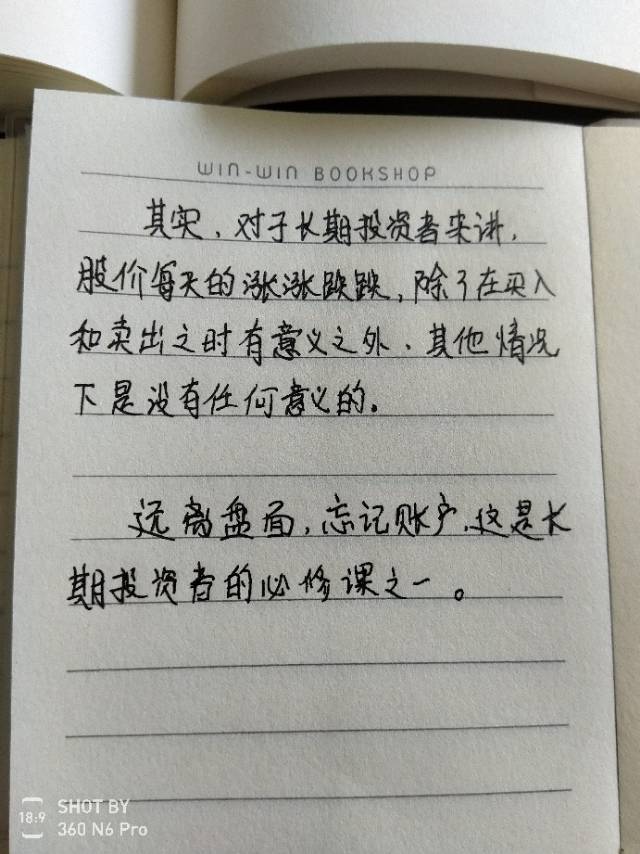 WIN-WIN BOOKSHOP
其实，对于长期投资者来讲，
股价每天的涨涨跌跌，除了在买入
和卖出之时有意义之外、其他情况
下是没有任何意义的。
远离盘面，忘记账户，这是长
期投资者的必修课之一。
18:9
SHOT BY
360 N6 Pro